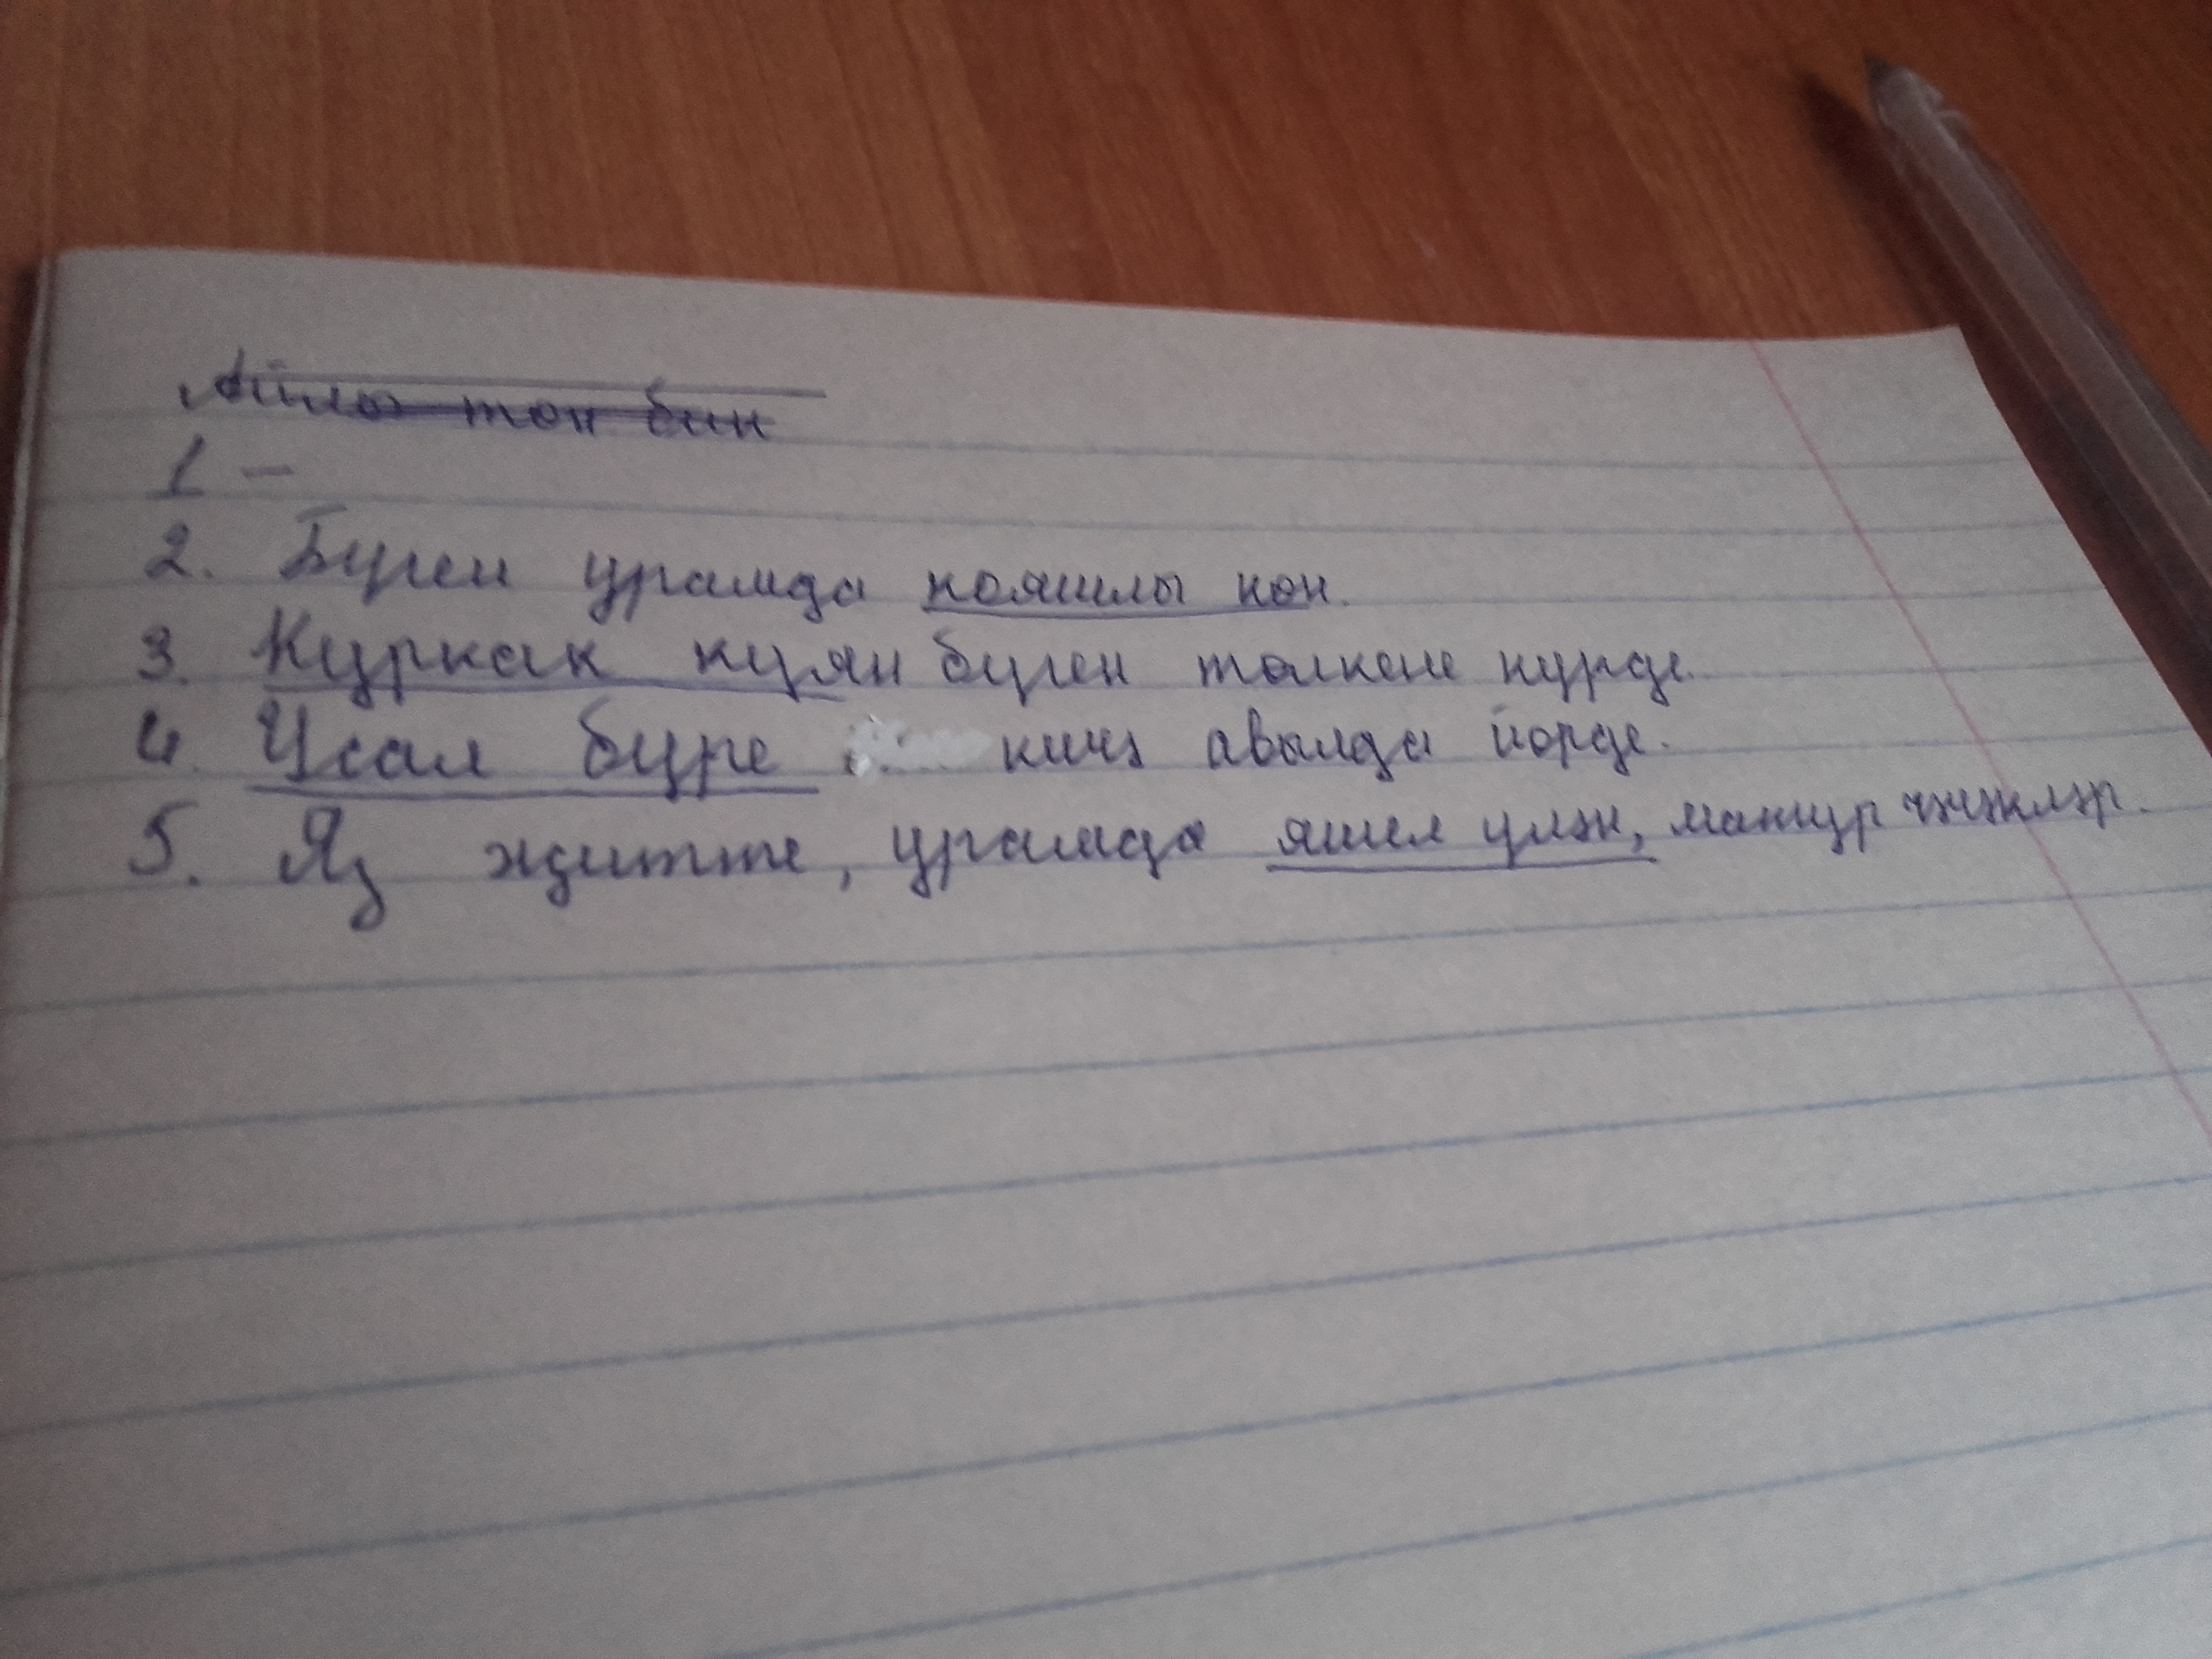 1 –
2. Бүген урамда кояшлы көн.
3. Куркак куян бүген төлкене күрде.
4. Усал бүре кичә авылда йөрде.
5. Яз җитте, урамда яшел үлән, матур чәчәкләр.